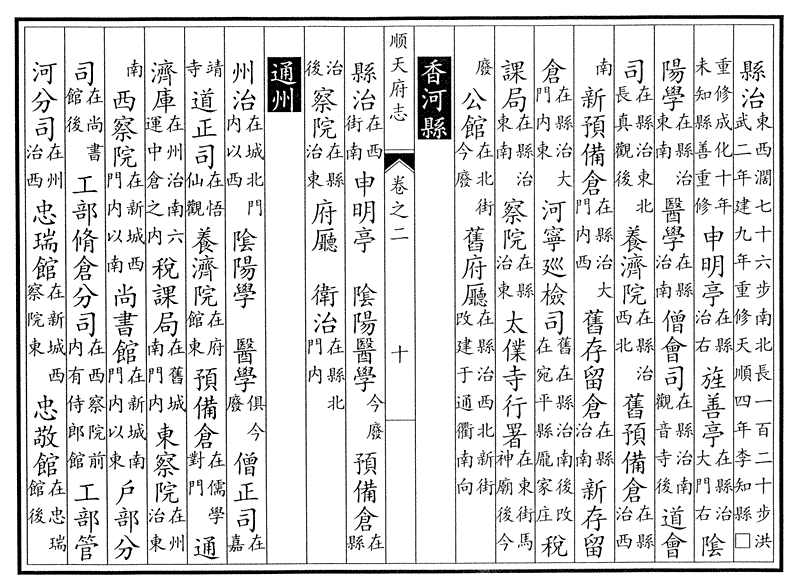 縣治東西濶七十六步南北長一百二十步洪武二年建九年重修天順四年李知縣□
重修成化十年未知縣善重修申明亭在縣治右旌善亭在縣治大門右陰
陽學在縣治東南醫學在縣治南僧會司在縣治南觀音寺後道會
司在縣治東北長真觀後養濟院在縣治西北舊預備倉在縣治西
南新預備倉在縣治大門內西舊存留倉在縣治南新存留
倉在縣治大門內東河寧廵檢司舊在縣治南後改在宛平縣龐家庄稅
課局在縣治東南察院在縣治東太僕寺行署在東街馬神廟後今
廢公館在北街今廢舊府廳在縣治西北新街改建于通衢南向
香河縣
順天府志 卷之二 十
縣治在西街南申明亭 陰陽醫學今廢預備倉在縣
治後察院在縣治東府廳 衛治在縣北門内
通州
州治在城北門内以西陰陽學 醫學俱今廢僧正司在嘉
靖寺道正司在悟仙觀養濟院在府館東預備倉在儒學對門通
濟庫在州治南六運中倉之内稅課局在舊城南門内東察院在州治東
南西察院在新城西門内以南尚書館在新城南門内以東戶部分
司在尚書館後工部脩倉分司在西察院前内有侍郎館工部管
河分司在州治西忠瑞館在新城西察院東忠敬館在忠瑞館後